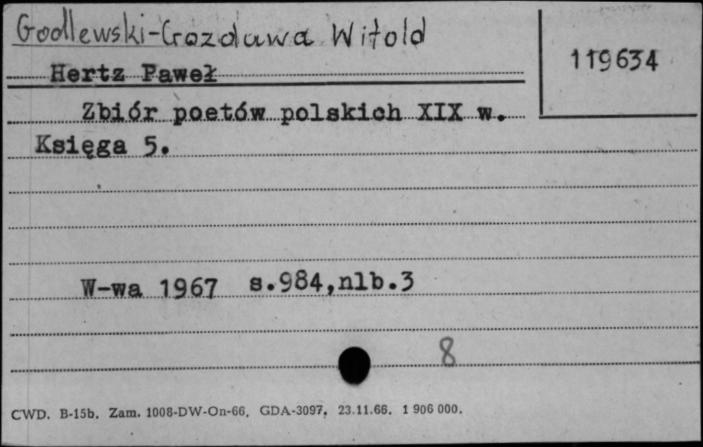 Godlewski-Gozdawa Witold
119634
Hertz Paweł
Zbiór poetów polskich XIX w.
Księga 5.
W-wa 1967 s.984,nlb.3
8
CWD. B-15b. Zam. 1008-DW-On-66, GDA-3097, 23.11.66. 1 906 000.